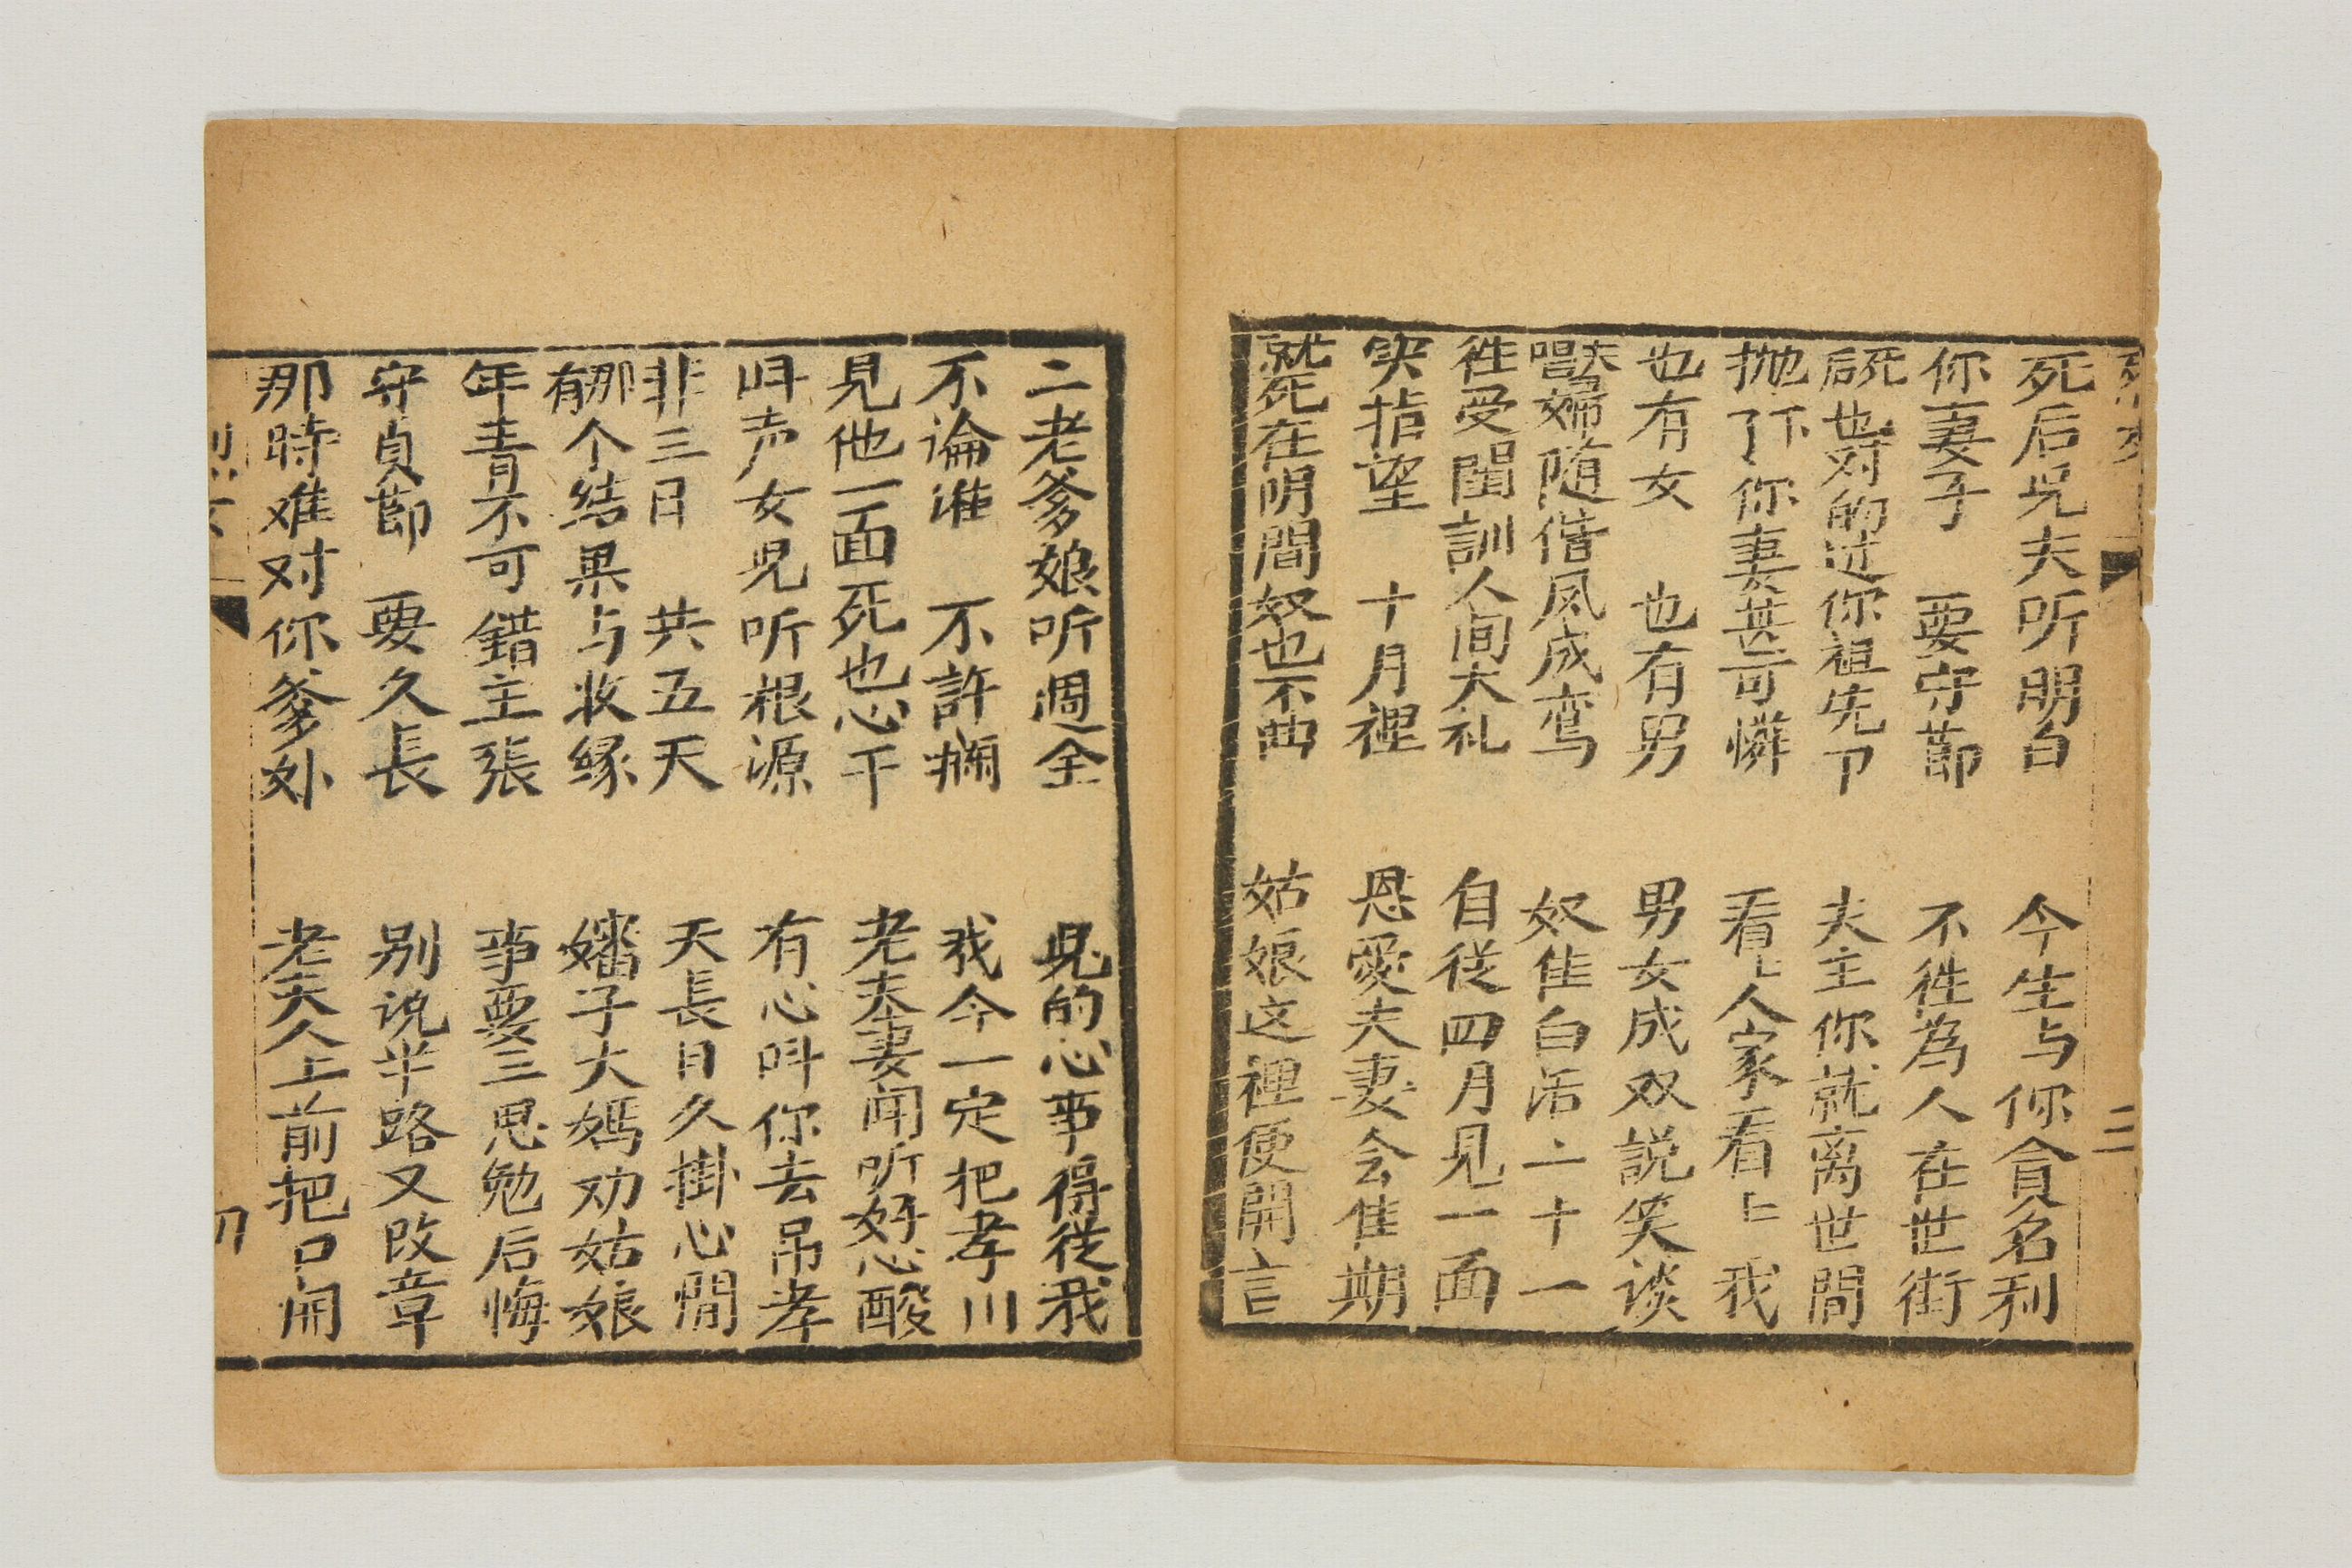 死后児夫听明白　今生与你貪名利
你妻子　要守節　不徃為人在世街
死后也对的过你祖先下　夫主你就离世間
抛下了你妻甚可憐　看見人家看上我
也有女　也有男　男女成双説笑谈
夫唱婦随偕凤成鸾　奴隹白活二十一
徃受閨訓人间大礼　自従四月見一面
実指望　十月裡　恩愛夫妻会隹期
就死在阴間奴也不曲　姑娘这裡便開言
三
二老爹娘听週全　児的心事得従我
不論谁　不許攔　我今一定把孝川
見他一面死也心干　老夫妻闻听好心酸
叫声女児听根源　有心叫你去吊孝
非三日　共五天　天長日久掛心間
那有个结果与收缘　嬸子大媽劝姑娘
年青不可錯主張　事要三思勉后悔
守貞節　要久長　别说半路又改章
那時难对你爹外　老夫人上前把口開